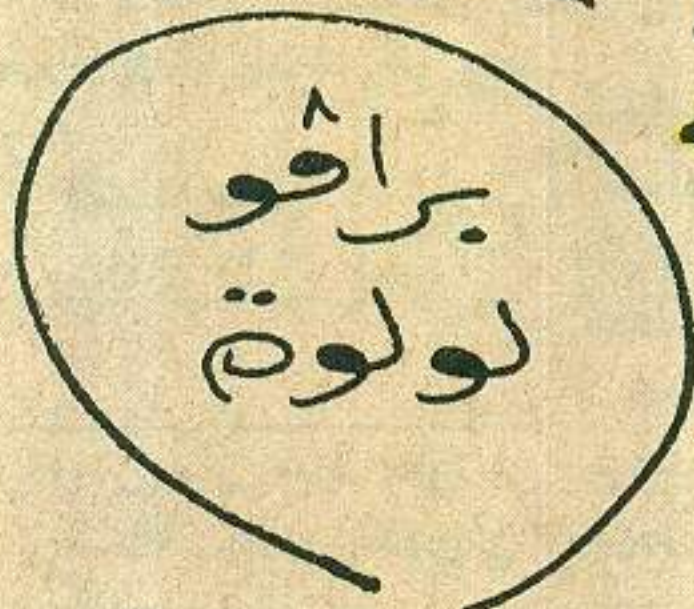 براڤو
لولوة